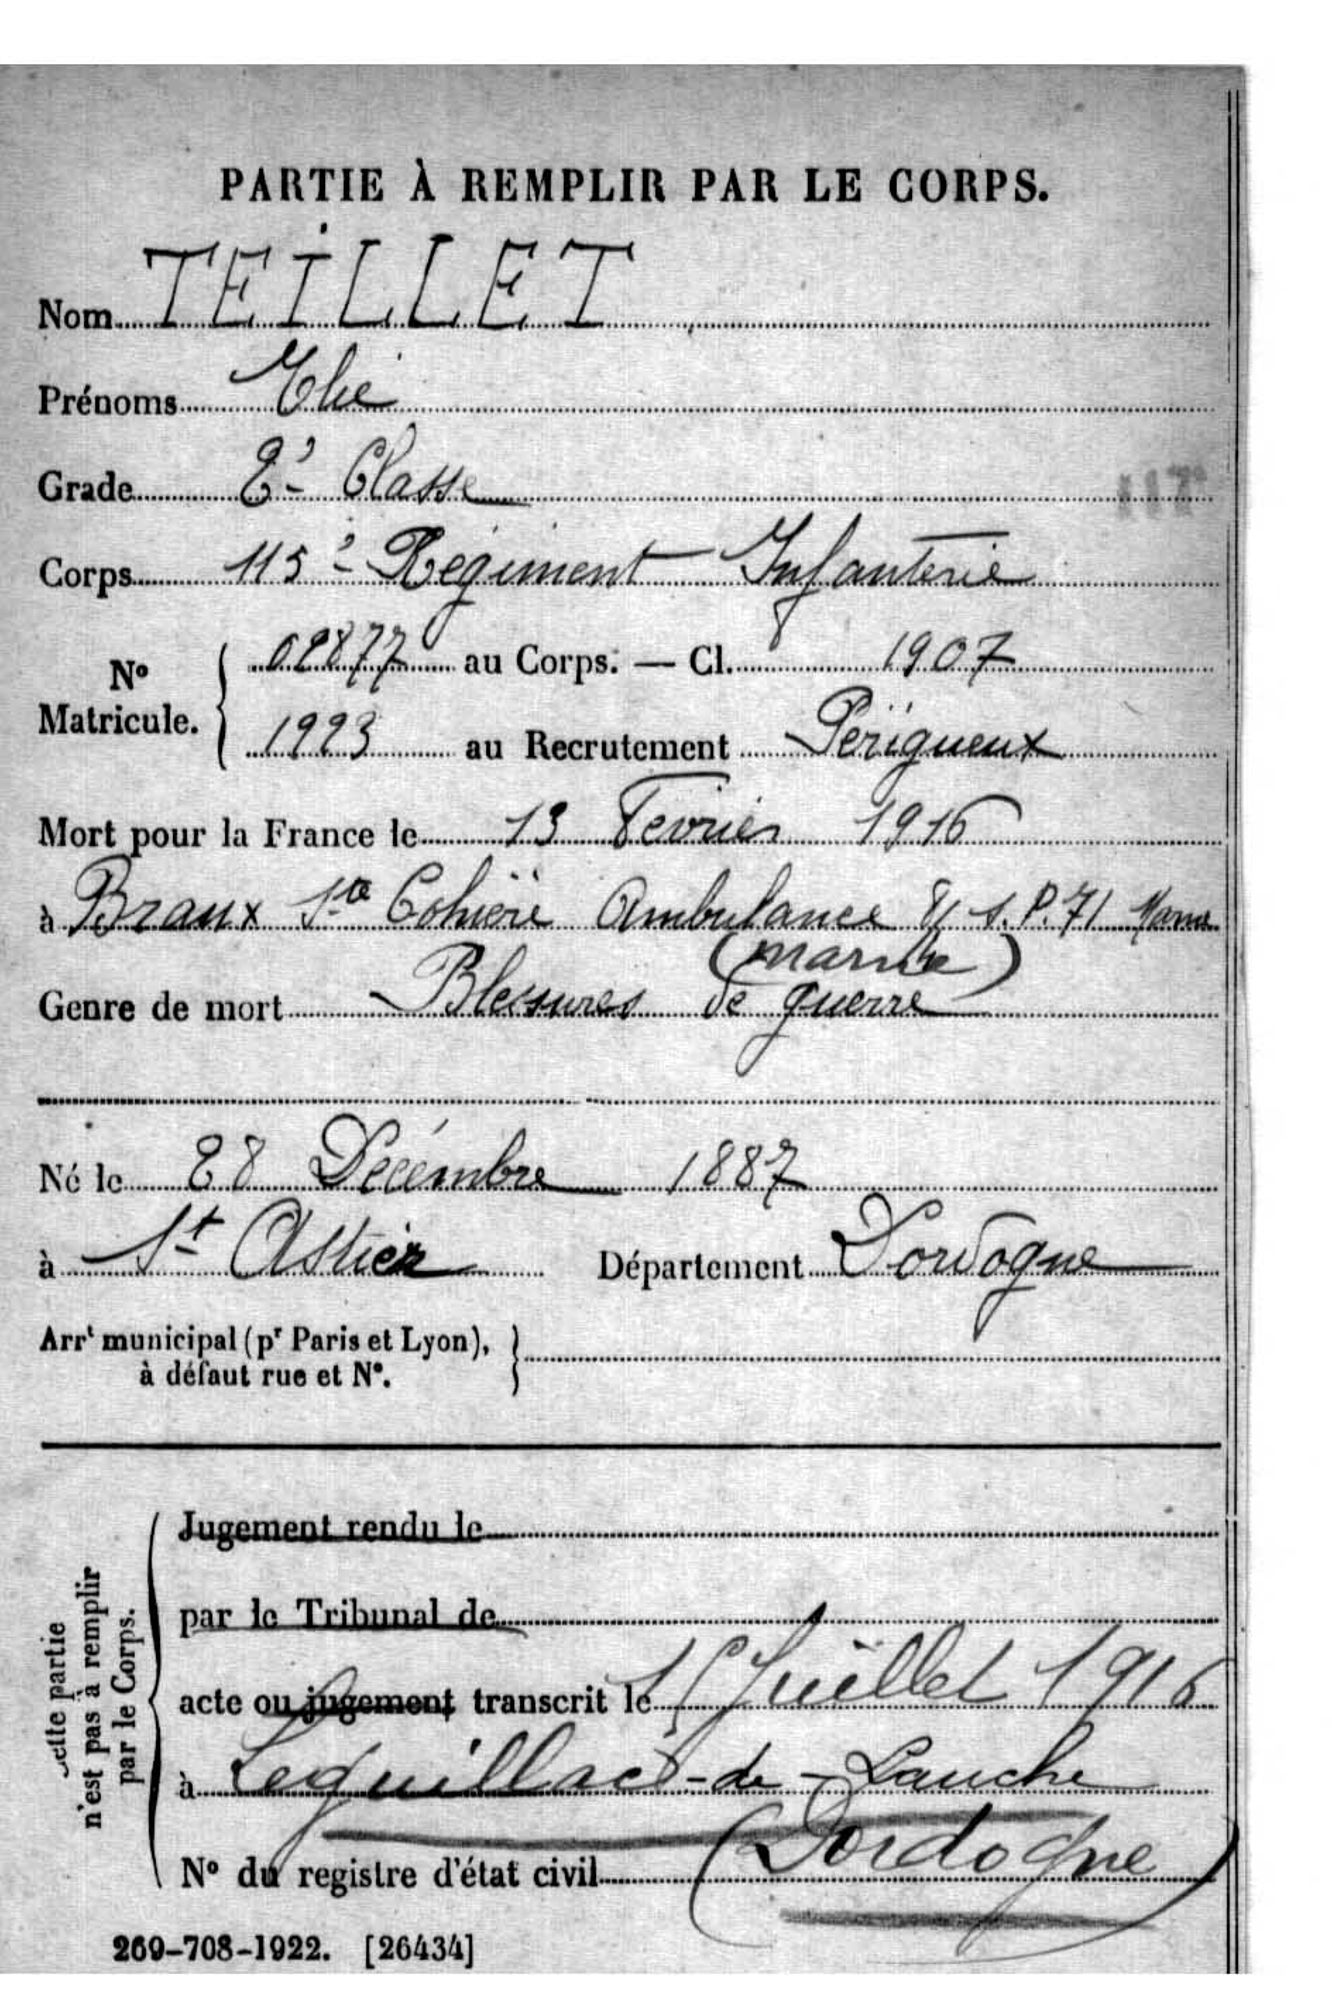 PARTIE À REMPLIR PAR LE CORPS.
Nom TEİLLET
Prénoms Elie
Grade 2e Classe
Corps 115e Régiment Infanterie
No Matricule. 02877 au Corps. — Cl. 1907
1923 au Recrutement Périgueux
Mort pour la France le 13 Février 1916
à Braux Ste Cohière Ambulance S.P. 71 Marne
(marne)
Genre de mort Blessures de guerre
Né le 28 Décembre 1887
à St Astier Département Dordogne
Arrt municipal (pr Paris et Lyon),
à défaut rue et N°.
Cette partie
n'est pas à remplir
par le Corps.
Jugement rendu le
par le Tribunal de
acte ou jugement transcrit le Juillet 1916
à Leguillac-de-Lauche
(Dordogne)
N° du registre d'état civil
269-708-1922. [26434]